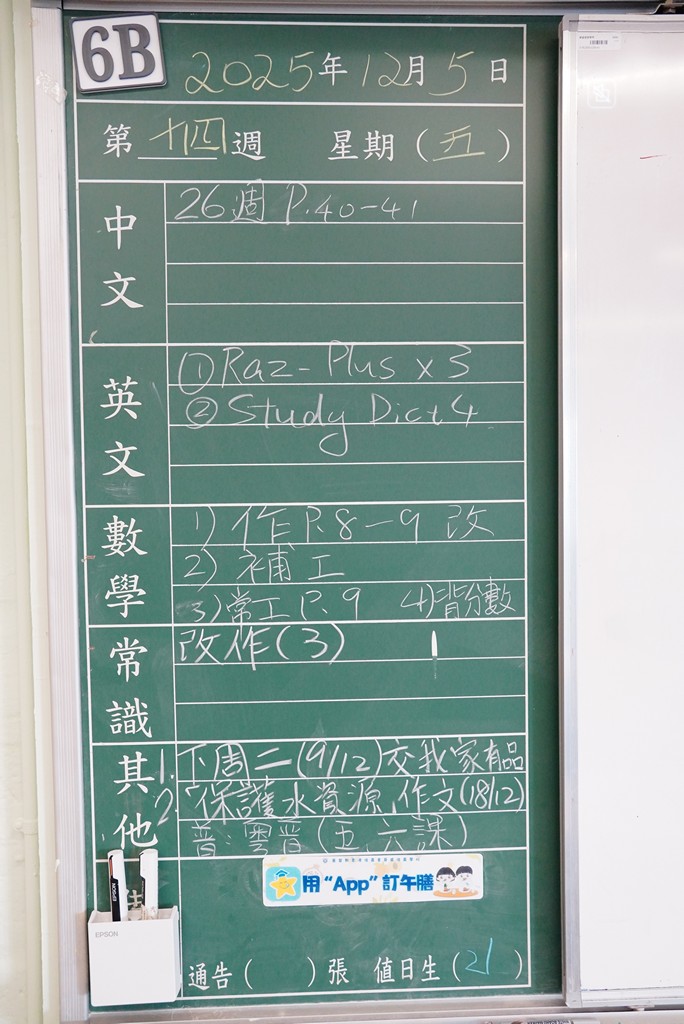 6B
2025年12月5日
第十四週 星期(五)
中文
26週 P.40-41
英文
①Raz-Plus x 3
②Study Dict 4
數學
1) 作 P.8-9 改
2) 補工
3)常工 P.9 4)背分數
常識
改作(3)
其他
1.下周二(9/12)交我家有品
2.「保護水資源」作文(18/12)
普:雲普(五、六課)
用“App”訂午膳
EPSON
EPSON
通告( )張 值日生(21)